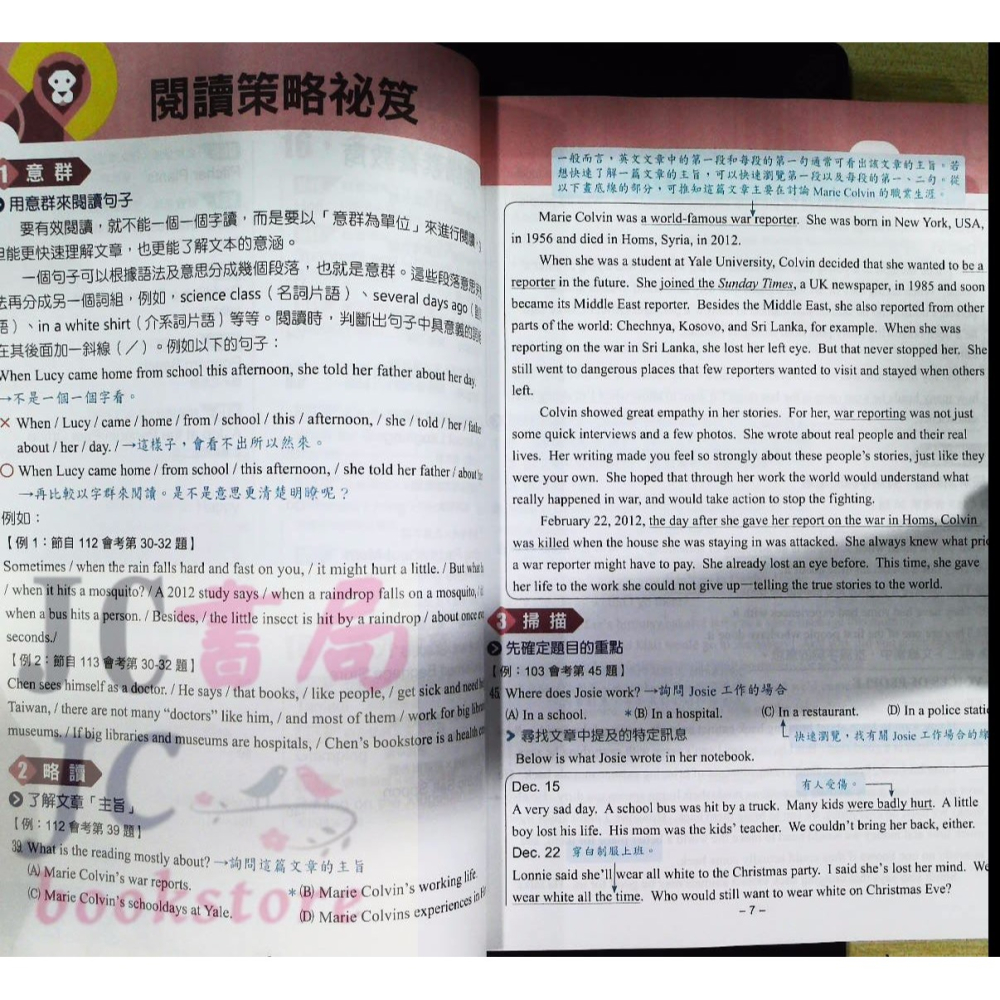 閱讀策略祕笈
1 意群
用意群來閱讀句子
要有效閱讀，就不能一個一個字讀，而是要以「意群為單位」來進行閱讀，
但能更快速理解文章，也更能了解文本的意涵。
一個句子可以根據語法及意思分成幾個段落，也就是意群。這些段落意思
法再分成另一個詞組，例如，science class（名詞片語）、several days ago（
語）、in a white shirt（介系詞片語）等等。閱讀時，判斷出句子中具意義的
在其後面加一斜線（／）。例如以下的句子：
When Lucy came home from school this afternoon, she told her father about her day.
→不是一個一個字看。
✕ When / Lucy / came / home / from / school / this / afternoon, / she / told / her /
about / her / day. / →這樣子，會看不出所以然來。
○ When Lucy came home / from school / this afternoon, / she told her father / about
→再比較以字群來閱讀。是不是意思更清楚明瞭呢？
例如：
【例 1：節自 112 會考第 30-32 題】
Sometimes / when the rain falls hard and fast on you, / it might hurt a little. / But what
/ when it hits a mosquito? / A 2012 study says / when a raindrop falls on a mosquito,
when a bus hits a person. / Besides, / the little insect is hit by a raindrop / about once
seconds./
【例 2：節自 113 會考第 30-32 題】
Chen sees himself as a doctor. / He says / that books, / like people, / get sick and need
Taiwan, / there are not many “doctors” like him, / and most of them / work for big
museums. / If big libraries and museums are hospitals, / Chen’s bookstore is a health
2 略讀
了解文章「主旨」
【例：112 會考第 39 題】
39. What is the reading mostly about? →詢問這篇文章的主旨
(A) Marie Colvin’s war reports. *(B) Marie Colvin’s working life.
(C) Marie Colvin’s schooldays at Yale. (D) Marie Colvins experiences in
JC書局
JC
bookstore
一般而言，英文文章中的第一段和每段的第一句通常可看出該文章的主旨。若
想快速了解一篇文章的主旨，可以快速瀏覽第一段以及每段的第一、二句。從
以下畫底線的部分，可推知這篇文章主要在討論 Marie Colvin 的職業生涯。
Marie Colvin was a world-famous war reporter. She was born in New York, USA,
in 1956 and died in Homs, Syria, in 2012.
When she was a student at Yale University, Colvin decided that she wanted to be a
reporter in the future. She joined the Sunday Times, a UK newspaper, in 1985 and soon
became its Middle East reporter. Besides the Middle East, she also reported from other
parts of the world: Chechnya, Kosovo, and Sri Lanka, for example. When she was
reporting on the war in Sri Lanka, she lost her left eye. But that never stopped her. She
still went to dangerous places that few reporters wanted to visit and stayed when others
left.
Colvin showed great empathy in her stories. For her, war reporting was not just
some quick interviews and a few photos. She wrote about real people and their real
lives. Her writing made you feel so strongly about these people’s stories, just like they
were your own. She hoped that through her work the world would understand what
really happened in war, and would take action to stop the fighting.
February 22, 2012, the day after she gave her report on the war in Homs, Colvin
was killed when the house she was staying in was attacked. She always knew what
a war reporter might have to pay. She already lost an eye before. This time, she gave
her life to the work she could not give up—telling the true stories to the world.
3 掃描
先確定題目的重點
【例：103 會考第 45 題】
45. Where does Josie work? →詢問 Josie 工作的場合
(A) In a school. *(B) In a hospital. (C) In a restaurant. (D) In a police
尋找文章中提及的特定訊息 快速瀏覽，找有關 Josie 工作場合的
Below is what Josie wrote in her notebook.
Dec. 15 有人受傷。
A very sad day. A school bus was hit by a truck. Many kids were badly hurt. A little
boy lost his life. His mom was the kids’ teacher. We couldn’t bring her back, either.
Dec. 22 穿白制服上班。
Lonnie said she’ll wear all white to the Christmas party. I said she’s lost her mind. We
wear white all the time. Who would still want to wear white on Christmas Eve?
– 7 –